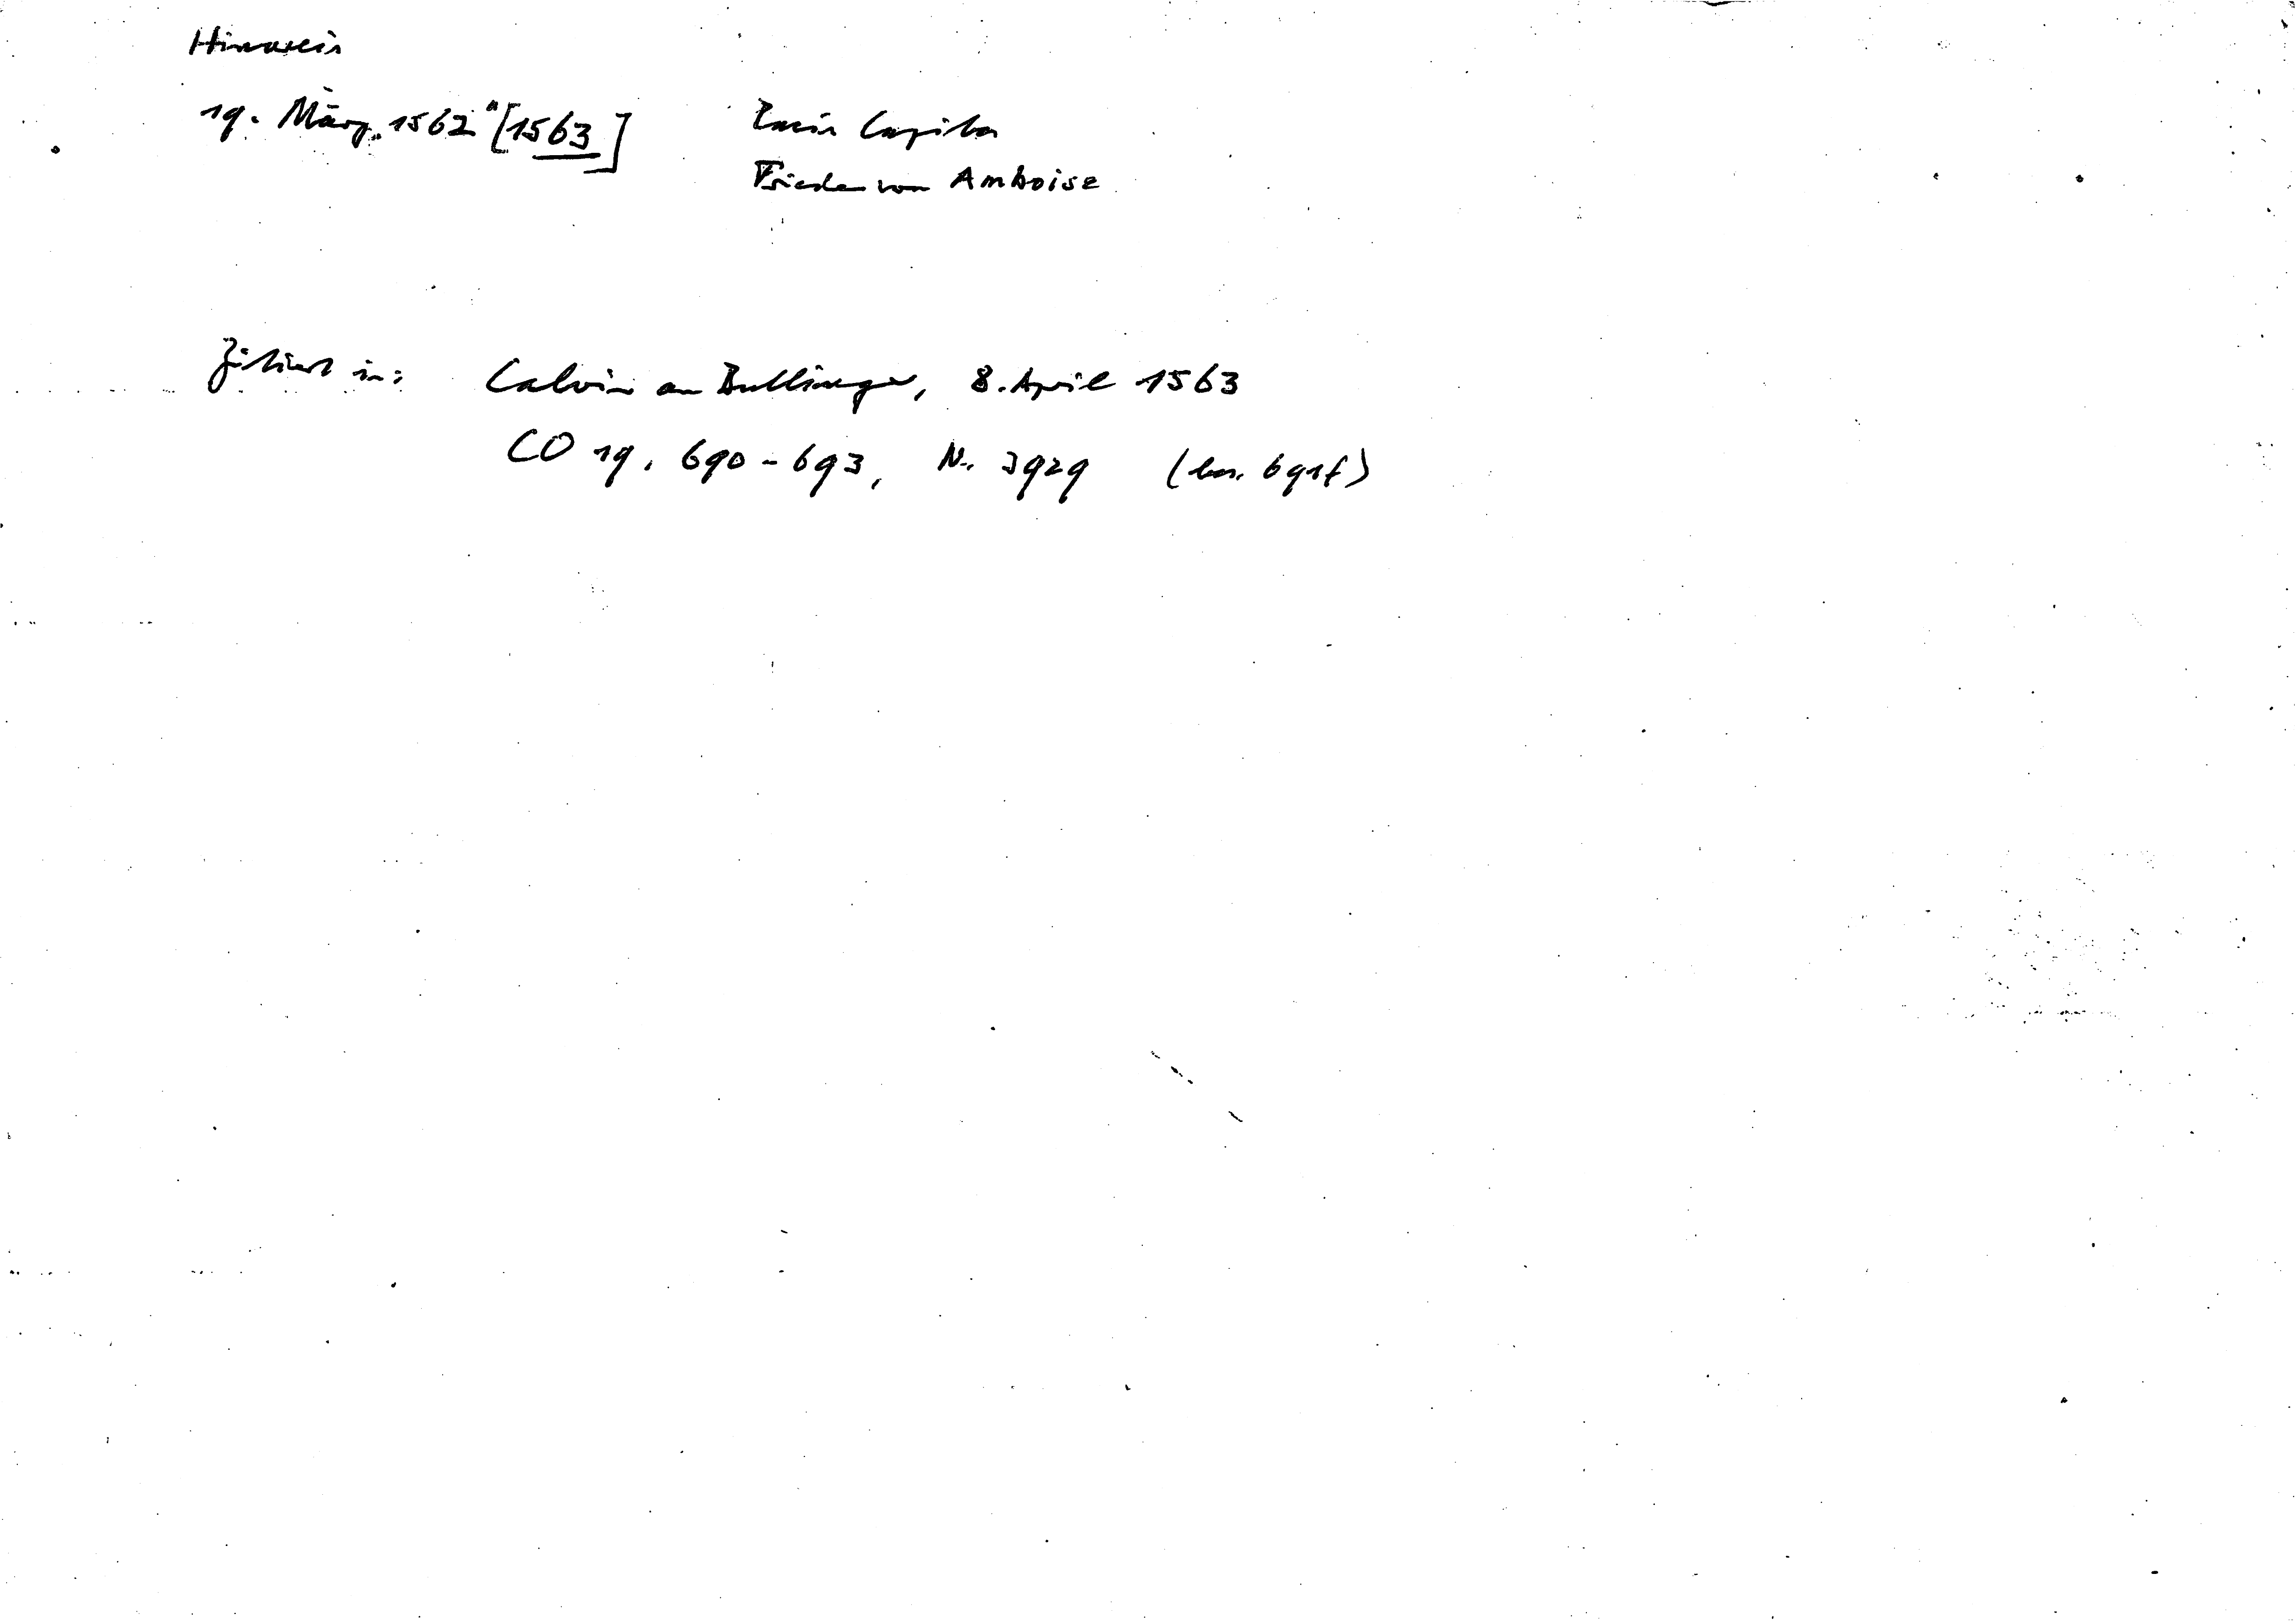 Hinweis
19. März „1562“ [1563]
Pacis Capita
Friede von Amboise
Zitiert in: Calvin an Bullinger, 8. April 1563
CO 19, 690-693, Nr. 3929 (bes. 691f)